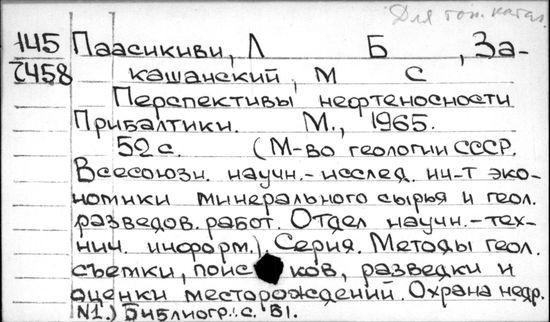 Для топ. катал.
145 Паасикиви, Л Б , За-
Т458 кашанский, М С
Перспективы нефтеносности
Прибалтики. М., 1965.
52 с. (М-во геологии СССР.
Всесоюзн. научн.-исслед. ин-т эко-
номики минерального сырья и геол.
разведов. работ. Отдел научн.-тех-
нич. информ.). Серия. Методы геол.
съемки, поисков, разведки и
оценки месторождений. Охрана недр.
N1.) Библиогр.: с. 51.